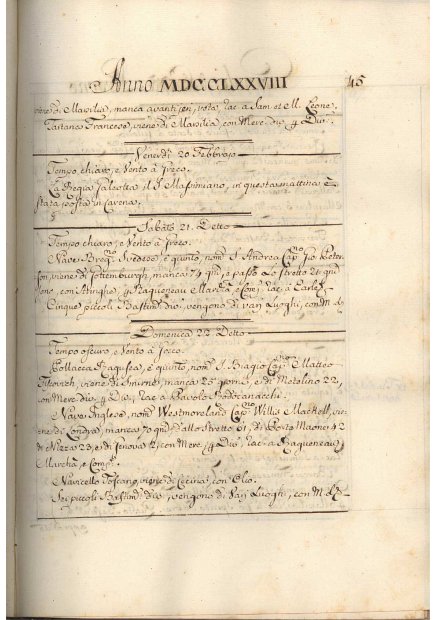 Anno MDCCLXXVIII 45
viene di Marsilia, manca avanti jeri, vota, rac. a Sam. et M. Leone.
Tartana Francese, viene di Marsilia, con Merc. div. 4 Div.
Venerdì 20 Febbrajo
Tempo chiaro, e Vento à
La Regia il S. Massimiano, in questa mattina è
stata posta in Carena.
Sabato 21. Detto
Tempo chiaro, e Vento à
Nave Svedese è quinto, nom. S. Andrea Cap.no Gio. Peter-
son, viene di Gottenburgh, manca 79 qui, e passò Lo Stretto 21 qui
sono, con Aringhe, 4 Raguenau March. e Comp.
Cinque piccoli Bastim. div. vengono di varj Luoghi, con M. d.
Domenica 22 Detto
Tempo oscuro, e Vento à
Pollacca Ragusea, è quinto, nom. S. Biagio Cap.no Matteo
viene di Smirne, manca 25 giorni, e di Metelino 22,
con Merc. div. 4 Div., rac. a Pavolo
Nave Inglese, nom. Westmoreland Cap.no Willis Machell, vie-
ne di Londra, manca 70 qui, dallo Stretto 61, di Porto Maone 42
di Nizza 23, e di Genova 12, con Merc. 4 Div. rac. a Raguenau
March. e Comp.
Navicello Toscano, viene di Cecina, con Olio.
Sei piccoli Bastim. div., vengono di Varj Luoghi, con M. d.